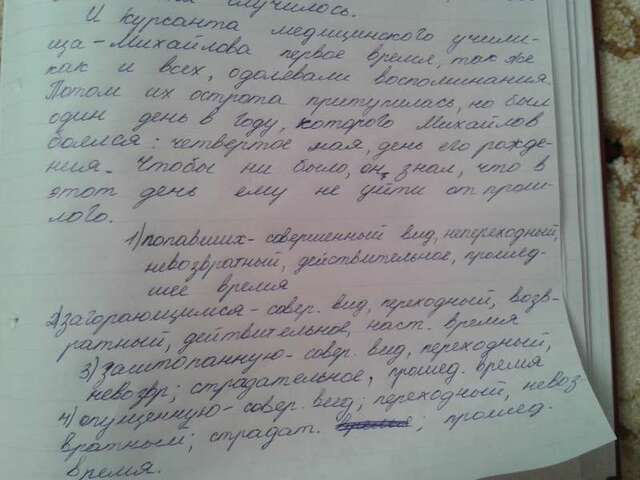 случилось.
И курсанта медицинского учили-
ща - Михайлова первое время, так же
как и всех, одолевали воспоминания.
Потом их острота притупилась, но был
один день в году, которого Михайлов
боялся: четвертое мая, день его рожде-
ния. Чтобы ни было, он знал, что в
этот день ему не уйти от прош-
лого.
1) попавших - совершенный вид, непереходный,
невозвратный, действительное, прошед-
шее время
2) загорающимся - совер. вид, переходный, возв-
ратный, действительное, наст. время
3) заштопанную - совер. вид, переходный,
невозвр; страдательное, прошед. время
4) опущенную - совер. вид; переходный, невоз
вратный; страдат. ; прошед.
время.